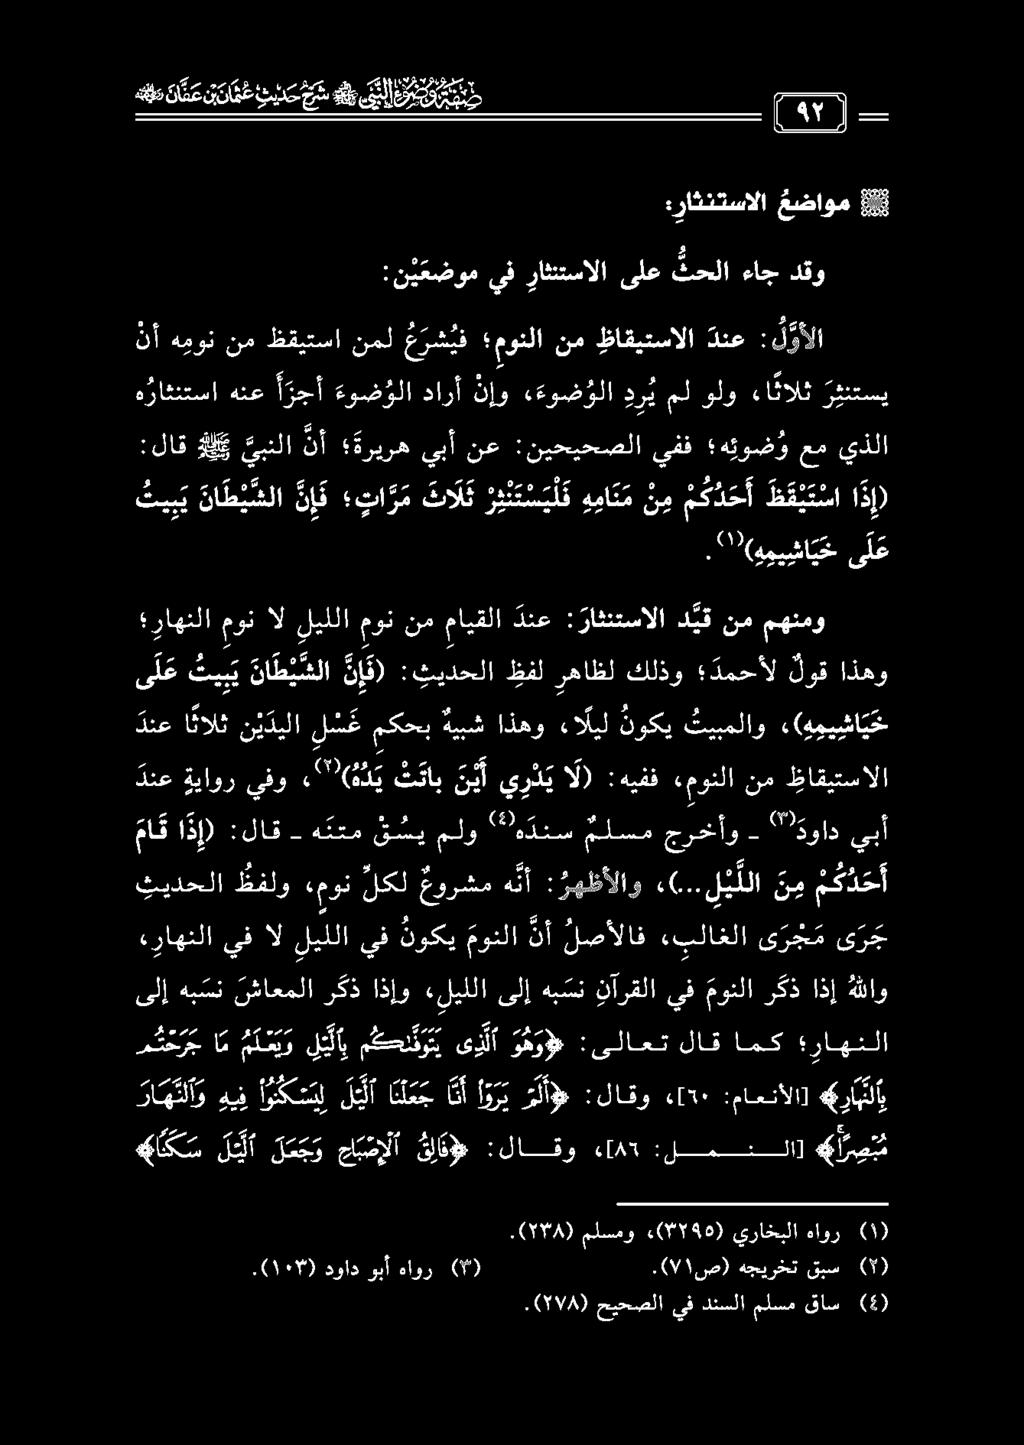 صِفَةُ وُضُوءِ النَّبِيِّ ﷺ شَرْحُ حَدِيثِ عُثْمَانَ بْنِ عَفَّانَ رضي الله عنه
٩٢
مواضعُ الاستنثارِ:
وقد جاء الحثُّ على الاستنثارِ في موضعَيْن:
الأوَّلُ: عندَ الاستيقاظِ من النومِ؛ فيُشرَعُ لمن استيقظ من نومِه أنْ
يستنثِرَ ثلاثًا، ولو لم يُرِدِ الوُضوءَ، وإنْ أراد الوُضوءَ أجزَأَ عنه استنثارُه
الذي مع وُضوئِه؛ ففي الصحيحين: عن أبي هريرةَ؛ أنَّ النبيَّ ﷺ قال:
(إِذَا اسْتَيْقَظَ أَحَدُكُمْ مِنْ مَنَامِهِ فَلْيَسْتَنْثِرْ ثَلَاثَ مَرَّاتٍ؛ فَإِنَّ الشَّيْطَانَ يَبِيتُ
عَلَى خَيَاشِيمِهِ)(١).
ومنهم من قيَّد الاستنثارَ: عندَ القيامِ من نومِ الليلِ لا نومِ النهارِ؛
وهذا قولٌ لأحمدَ؛ وذلك لظاهرِ لفظِ الحديثِ: (فَإِنَّ الشَّيْطَانَ يَبِيتُ عَلَى
خَيَاشِيمِهِ)، والمبيتُ يكونُ ليلًا، وهذا شبيهٌ بحكمِ غَسْلِ اليدَيْنِ ثلاثًا عندَ
الاستيقاظِ من النومِ، ففيه: (لَا يَدْرِي أَيْنَ بَاتَتْ يَدُهُ)(٢)، وفي روايةٍ عندَ
أبي داودَ(٣) ـ وأخرج مسلمٌ سندَه(٤) ولم يسُقْ متنَه ـ قال: (إِذَا قَامَ
أَحَدُكُمْ مِنَ اللَّيْلِ...)، والأظهرُ: أنَّه مشروعٌ لكلِّ نومٍ، ولفظُ الحديثِ
جَرَى مَجْرَى الغالبِ، فالأصلُ أنَّ النومَ يكونُ في الليلِ لا في النهارِ،
واللهُ إذا ذكَر النومَ في القرآنِ نسَبه إلى الليلِ، وإذا ذكَر المعاشَ نسَبه إلى
النهارِ؛ كما قال تعالى: ﴿وَهُوَ ٱلَّذِى يَتَوَفَّىٰكُم بِٱلَّيْلِ وَيَعْلَمُ مَا جَرَحْتُم
بِٱلنَّهَارِ﴾ [الأنعام: ٦٠]، وقال: ﴿أَلَمْ يَرَوْا۟ أَنَّا جَعَلْنَا ٱلَّيْلَ لِيَسْكُنُوا۟ فِيهِ وَٱلنَّهَارَ
مُبْصِرًا﴾ [النمل: ٨٦]، وقال: ﴿فَالِقُ ٱلْإِصْبَاحِ وَجَعَلَ ٱلَّيْلَ سَكَنًا﴾
(١) رواه البخاري (٣٢٩٥)، ومسلم (٢٣٨).
(٢) سبق تخريجه (ص٧١). (٣) رواه أبو داود (١٠٣).
(٤) ساق مسلم السند في الصحيح (٢٧٨).